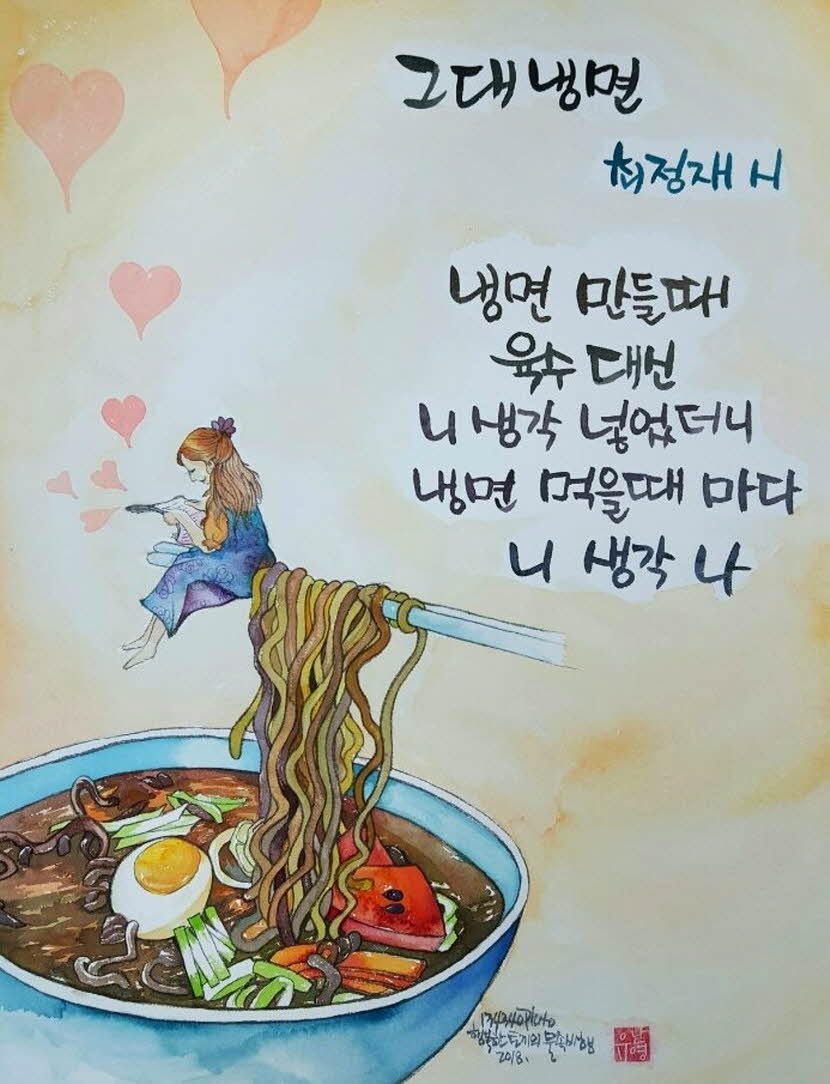 그대 냉면
최정재 시
냉면 만들때
육수 대신
니 생각 넣었더니
냉면 먹을때 마다
니 생각 나
행복한 토끼의 물속비행
2018.